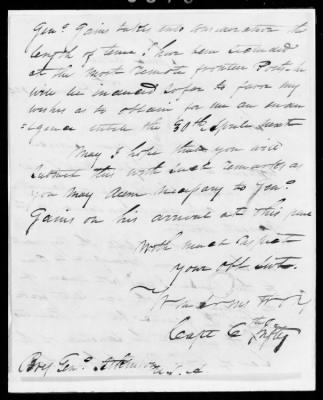 Genl. Gains takes into consideration the
length of time I have been
at the most remote frontier Post he
will be induced so far to favor my
wishes as to obtain for me an
until the 30th next
May I hope that you will
submit this with such remarks as
you may deem necessary to Genl.
Gains on his arrival at this place
With much respect
your Obt. Svt.
Capt 6th Infty
Brig Genl. Atkinson
U.S.A